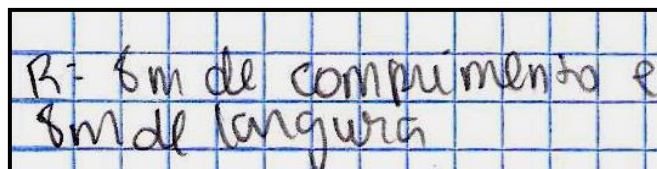 R= 8m de comprimento e
8m de largura